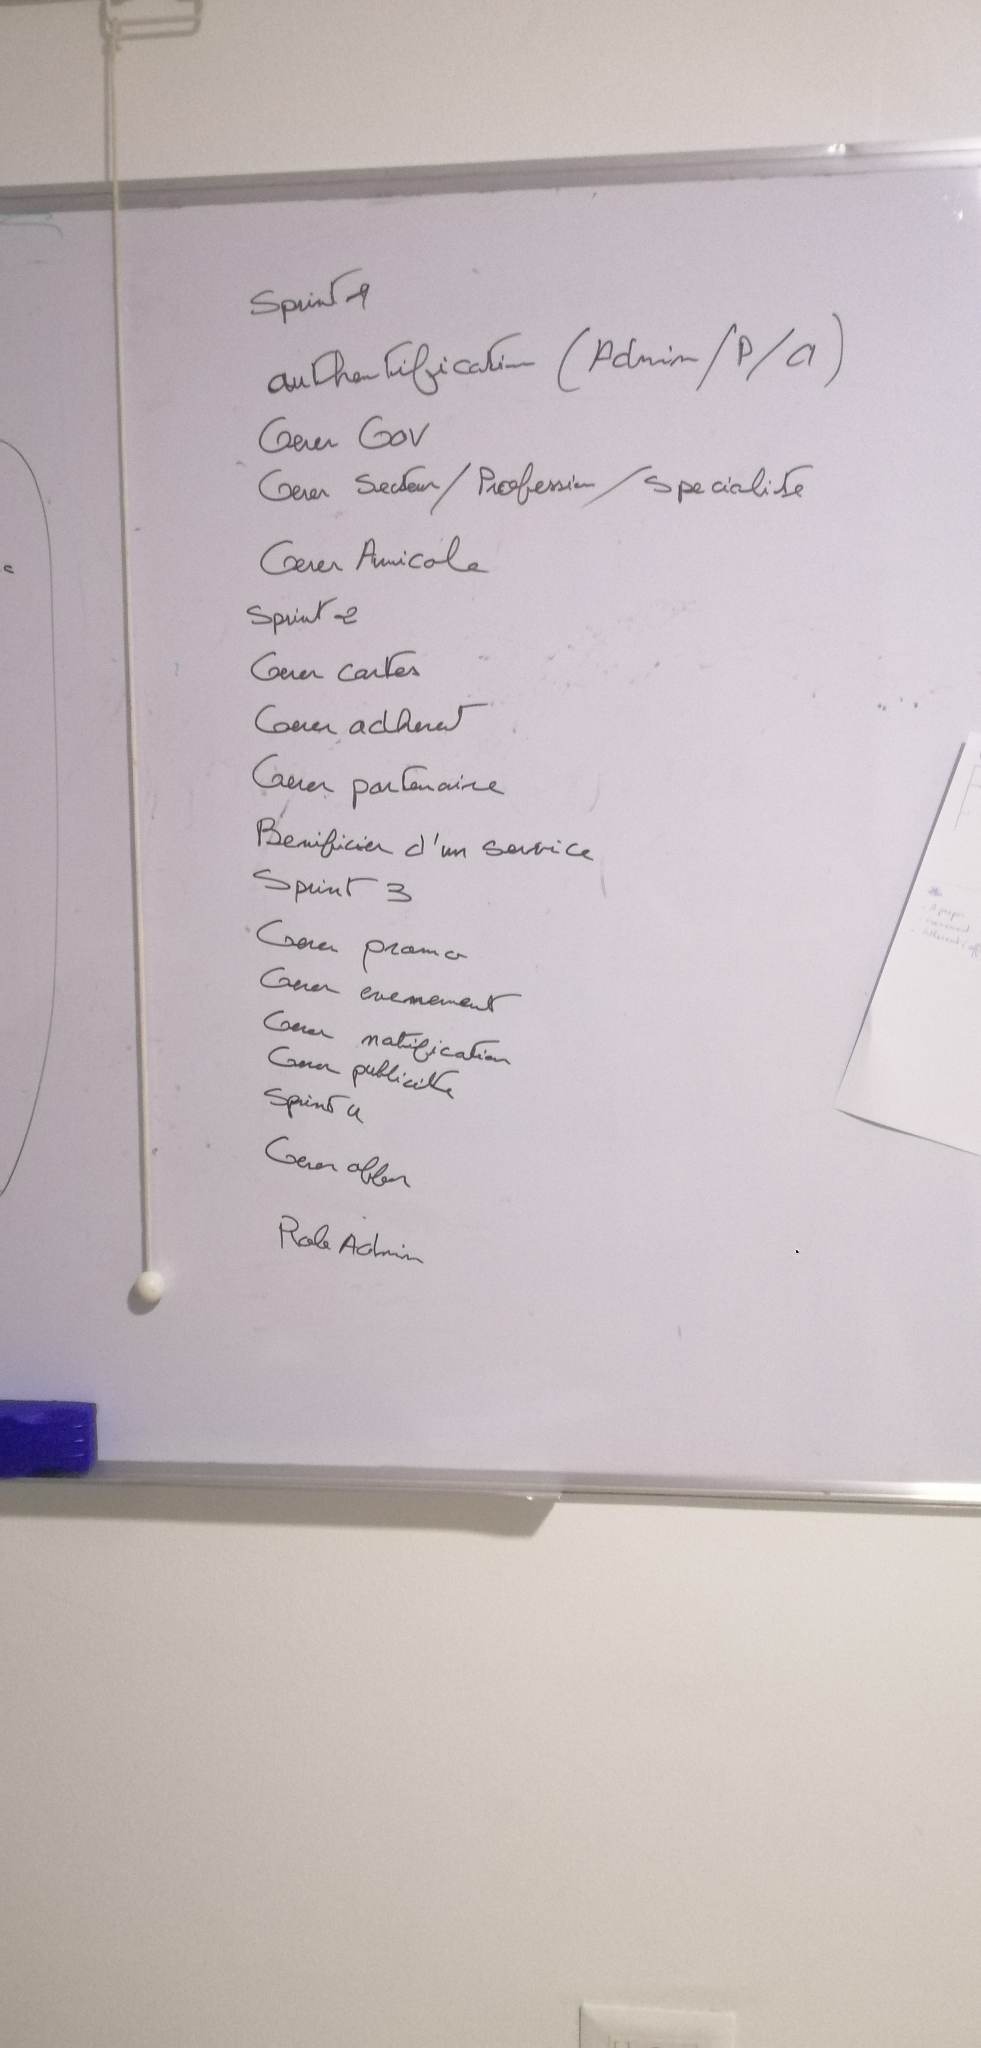 Sprint 1
authentification (Admin/P/a)
Gerer Gov
Gerer Secteur/Profession/Specialite
Gerer Amicale
Sprint 2
Gerer cartes
Gerer adherent
Gerer partenaire
Benificier d'un service
Sprint 3
Gerer promo
Gerer evenement
Gerer notification
Gerer publicite
Sprint 4
Gerer offer
Role Admin